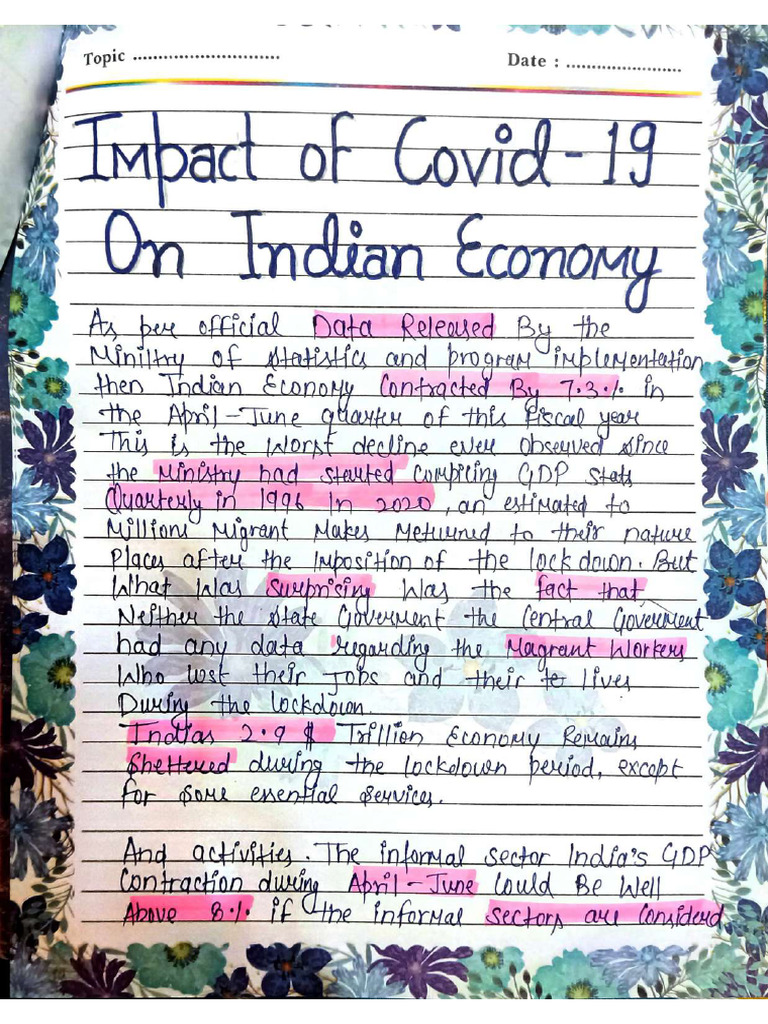 Topic ............................ Date : ........................
Impact of Covid-19
On Indian Economy
As per official Data Released By the
Ministry of Statistics and program implementation
then Indian Economy Contracted By 7.3% in
the April-June quarter of this fiscal year
This is the worst decline ever observed since
the Ministry had started Compiling GDP stats
Quarterly in 1996 In 2020, an estimated to
Millions Migrant Makes Meturned to their nature
Places after the Imposition of the lockdown. But
What Was Surprising Was the fact that
Neither the State Goverment the Central Goverment
had any data regarding the Magrant Workers
Who lost their Jobs and their lives
During the lockdown.
Indias 2.9 $ Trillion Economy Remains
Shettered during the lockdown period, except
for Some essential Services.
And activities. The informal Sector India's GDP
Contraction during April-June Could Be Well
Above 8% if the informal Sectors are Considerd